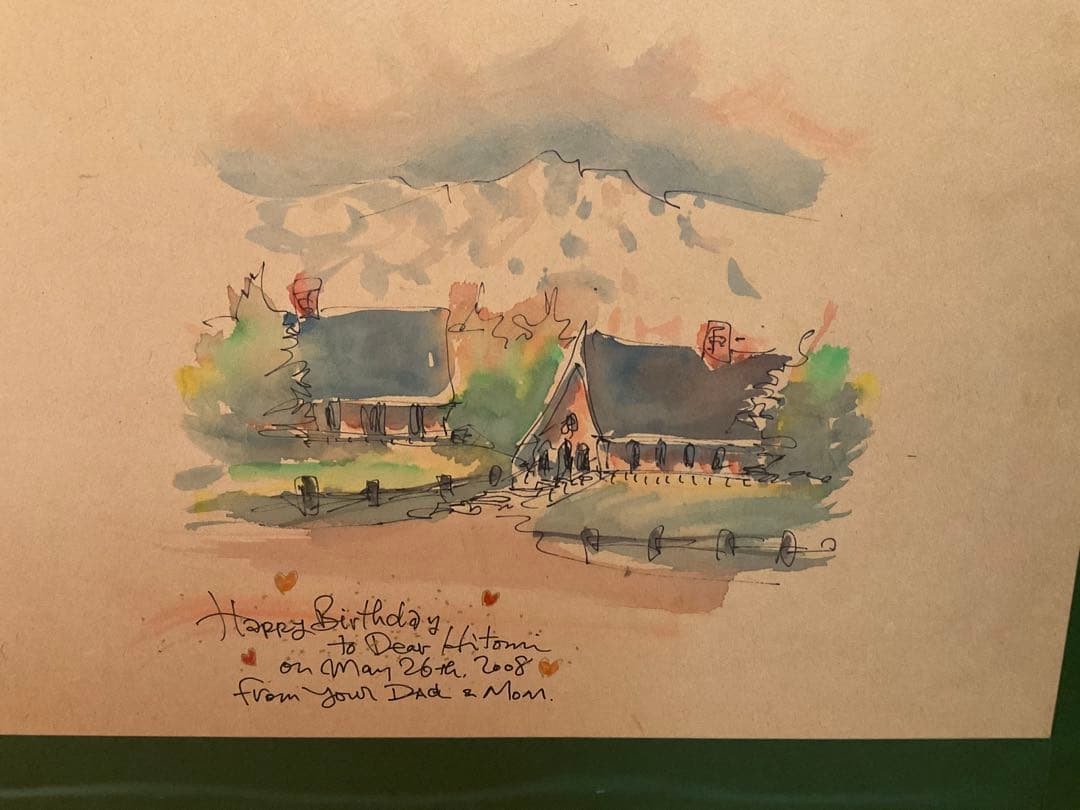 Happy Birthday
to Dear Hitomi
on May 26th, 2008
from Your Dad & Mom.